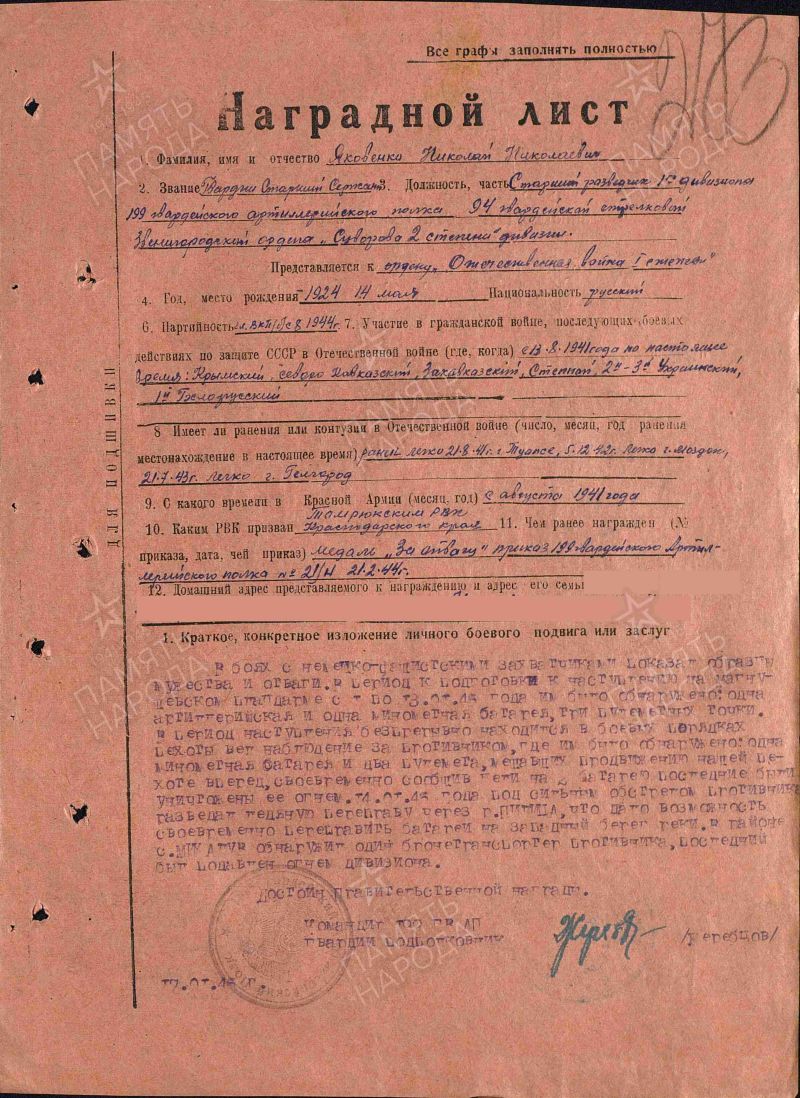 273
Все графы заполнять полностью
Наградной лист
1. Фамилия, имя и отчество Яковенко Николай Николаевич
2. Звание Гвардии Старший Сержант 3. Должность, часть Старший разведчик 1го дивизиона
199 гвардейского артиллерийского полка 94 гвардейской стрелковой
Звенигородской ордена „Суворова 2 степени" дивизии.
Представляется к ордену „Отечественная война I степени"
4. Год, место рождения 1924 14 мая Национальность русский
6. Партийность чл. ВКП/б с 8 1944г. 7. Участие в гражданской войне, последующих боевых
действиях по защите СССР в Отечественной войне (где, когда) с 13.8.1941 года по настоящее
время: Крымский, северо Кавказский, Закавказский, Степной, 2й-3й Украинский,
1й Белорусский
8 Имеет ли ранения или контузии в Отечественной войне (число, месяц, год ранения
местонахождение в настоящее время) ранен легко 21.8.41г. г Туапсе, 5.12.42г. легко г. Моздок,
21.7.43г. легко г. Белгород
9. С какого времени в Красной Армии (месяц, год) с августа 1941 года
Темрюкским РВК
10. Каким РВК призван Краснодарского края 11. Чем ранее награжден (№
приказа, дата, чей приказ) медаль „За отвагу" приказ 199 гвардейского Артил-
лерийского полка № 21/н 21.2.44г.
12. Домашний адрес представляемого к награждению и адрес его семьи
1. Краткое, конкретное изложение личного боевого подвига или заслуг
В боях с немецко-фашистскими захватчиками показал образцы
мужества и отваги. В период к подготовки к наступлению на магну-
шевском плацдарме с по 13.01.45 года им было обнаружено: одна
артиллерийская и одна минометная батарея, три пулеметных точки.
В период наступления безпрерывно находится в боевых порядках
пехоты вел наблюдение за противником, где им было обнаружено: одна
минометная батарея и два пулемета, мешавших продвижению нашей пе-
хоте вперед, своевременно сообщив цели на 2 батарею последние были
уничтожены ее огнем. 14.01.45 года под сильным обстрелом противника
разведал ледяную переправу через р. ПИЛИЦА, что дало возможность
своевременно переправить батареи на западный берег реки. В районе
с. обнаружил один бронетранспортер противника, последний
был подавлен огнем дивизиона.
Достоин правительственной награды.
Командир 199 ГВ АП
гвардии подполковник /Жеребцов/
17.01.45 г.
ДЛЯ ПОДШИВКИ
ПАМЯТЬ НАРОДА
ПАМЯТЬ НАРОДА
ПАМЯТЬ НАРОДА
ПАМЯТЬ НАРОДА
ПАМЯТЬ НАРОДА
ПАМЯТЬ НАРОДА
ПАМЯТЬ НАРОДА